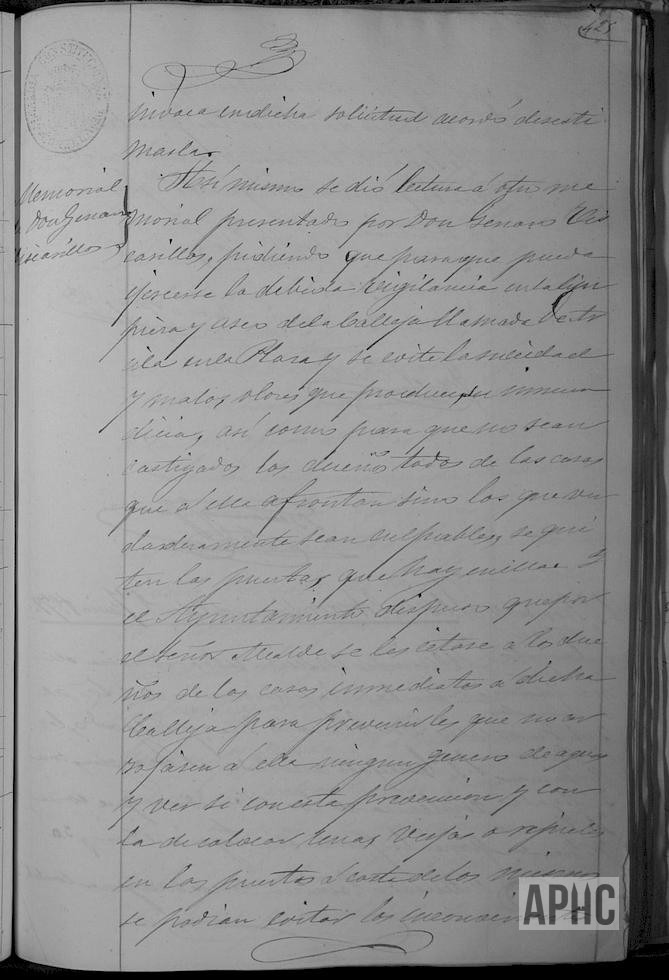 425
invoca en dicha solicitud acordó desesti
marla.
Memorial
Don Genaro
Asi mismo se dió lectura á otro me
morial presentado por Don Genaro Vis
carillas, pidiendo que para que pueda
ejercerse la debida vigilancia en la lim
pieza y aseo de la Calleja llamada de
en la Plaza y se evite la suciedad
y malos olores que producen inmun
dicias, así como para que no sean
castigados los dueños todos de las casas
que á ella afrontan sino los que ver
daderamente sean culpables, se qui
ten las puertas que hay en ella. Y
el Ayuntamiento dispuso que por
el señor Alcalde se les citase a los due
ños de las casas inmediatas a dicha
Calleja para prevenirles que no ar
rojasen á ella ningun genero de aguas
y ver si con esta prevencion y con
la de colocar unas rejas o
en las puertas á costa de los mismos
se podian evitar los inconvenientes
APHC